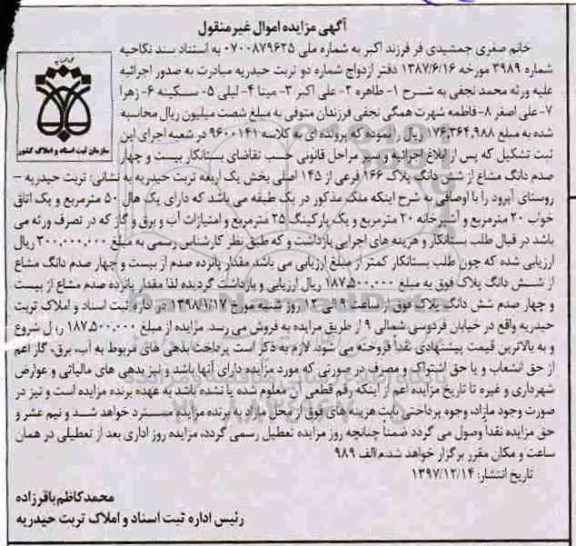 آگهی مزایده اموال غیر منقول
خانم صغری جمشیدی فر فرزند اکبر به شماره ملی ۰۷۰۰۸۷۹۶۲۵ به استناد سند نکاحیه
شماره ۳۹۸۹ مورخه ۱۳۸۷/۶/۱۶ دفتر ازدواج شماره دو تربت حیدریه مبادرت به صدور اجرائیه
علیه ورثه محمد نجفی به شرح ۱- طاهره ۲- علی اکبر ۳- مینا ۴- لیلی ۵- سکینه ۶- زهرا
۷- علی اصغر ۸- فاطمه شهرت همگی نجفی فرزندان متوفی به مبلغ شصت میلیون ریال محاسبه
شده به مبلغ ۱۷۶,۳۶۴,۹۸۸ ریال را نموده که پرونده ای به کلاسه ۹۶۰۰۱۴۱ در شعبه اجرای این
ثبت تشکیل که پس از ابلاغ اجرائیه و سیر مراحل قانونی حسب تقاضای بستانکار بیست و چهار
صدم دانگ مشاع از شش دانگ پلاک ۱۶۶ فرعی از ۱۴۵ اصلی بخش یک اربعه تربت حیدریه به نشانی: تربت حیدریه -
روستای آبرود را با اوصافی به شرح اینکه ملک مذکور در یک طبقه می باشد که دارای یک هال ۵۰ مترمربع و یک اتاق
خواب ۲۰ مترمربع و آشپزخانه ۲۰ مترمربع و یک پارکینگ ۲۵ مترمربع و امتیازات آب و برق و گاز که در تصرف ورثه می
باشد در قبال طلب بستانکار و هزینه های اجرایی بازداشت و که طبق نظر کارشناس رسمی به مبلغ ۳۰۰,۰۰۰,۰۰۰ ریال
ارزیابی شده که چون طلب بستانکار کمتر از مبلغ ارزیابی می باشد مقدار پانزده صدم از بیست و چهار صدم دانگ مشاع
از شش دانگ پلاک فوق به مبلغ ۱۸۷,۵۰۰,۰۰۰ ریال ارزیابی و بازداشت گردیده لذا مقدار پانزده صدم مشاع از بیست
و چهار صدم شش دانگ پلاک فوق از ساعت ۹ الی ۱۲ روز شنبه مورخ ۱۳۹۸/۱/۱۷ در اداره ثبت اسناد و املاک تربت
حیدریه واقع در خیابان فردوسی شمالی ۹ از طریق مزایده به فروش می رسد. مزایده از مبلغ ۱۸۷,۵۰۰,۰۰۰ ریال شروع
و به بالاترین قیمت پیشنهادی نقداً فروخته می شود. لازم به ذکر است پرداخت بدهی های مربوط به آب، برق، گاز اعم
از حق انشعاب و یا حق اشتراک و مصرف در صورتی که مورد مزایده دارای آنها باشد و نیز بدهی های مالیاتی و عوارض
شهرداری و غیره تا تاریخ مزایده اعم از اینکه رقم قطعی آن معلوم شده یا نشده باشد به عهده برنده مزایده است و نیز در
صورت وجود مازاد، وجوه پرداختی بابت هزینه های فوق از محل مازاد به برنده مزایده مسترد خواهد شد و نیم عشر و
حق مزایده نقداً وصول می گردد ضمناً چنانچه روز مزایده تعطیل رسمی گردد، مزایده روز اداری بعد از تعطیلی در همان
ساعت و مکان مقرر برگزار خواهد شد. م/الف ۹۸۹
تاریخ انتشار: ۱۳۹۷/۱۲/۱۴
محمد کاظم باقرزاده
رئیس اداره ثبت اسناد و املاک تربت حیدریه
سازمان ثبت اسناد و املاک کشور